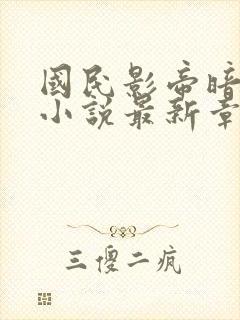 國民影帝暗
小說最新章
三傻二疯